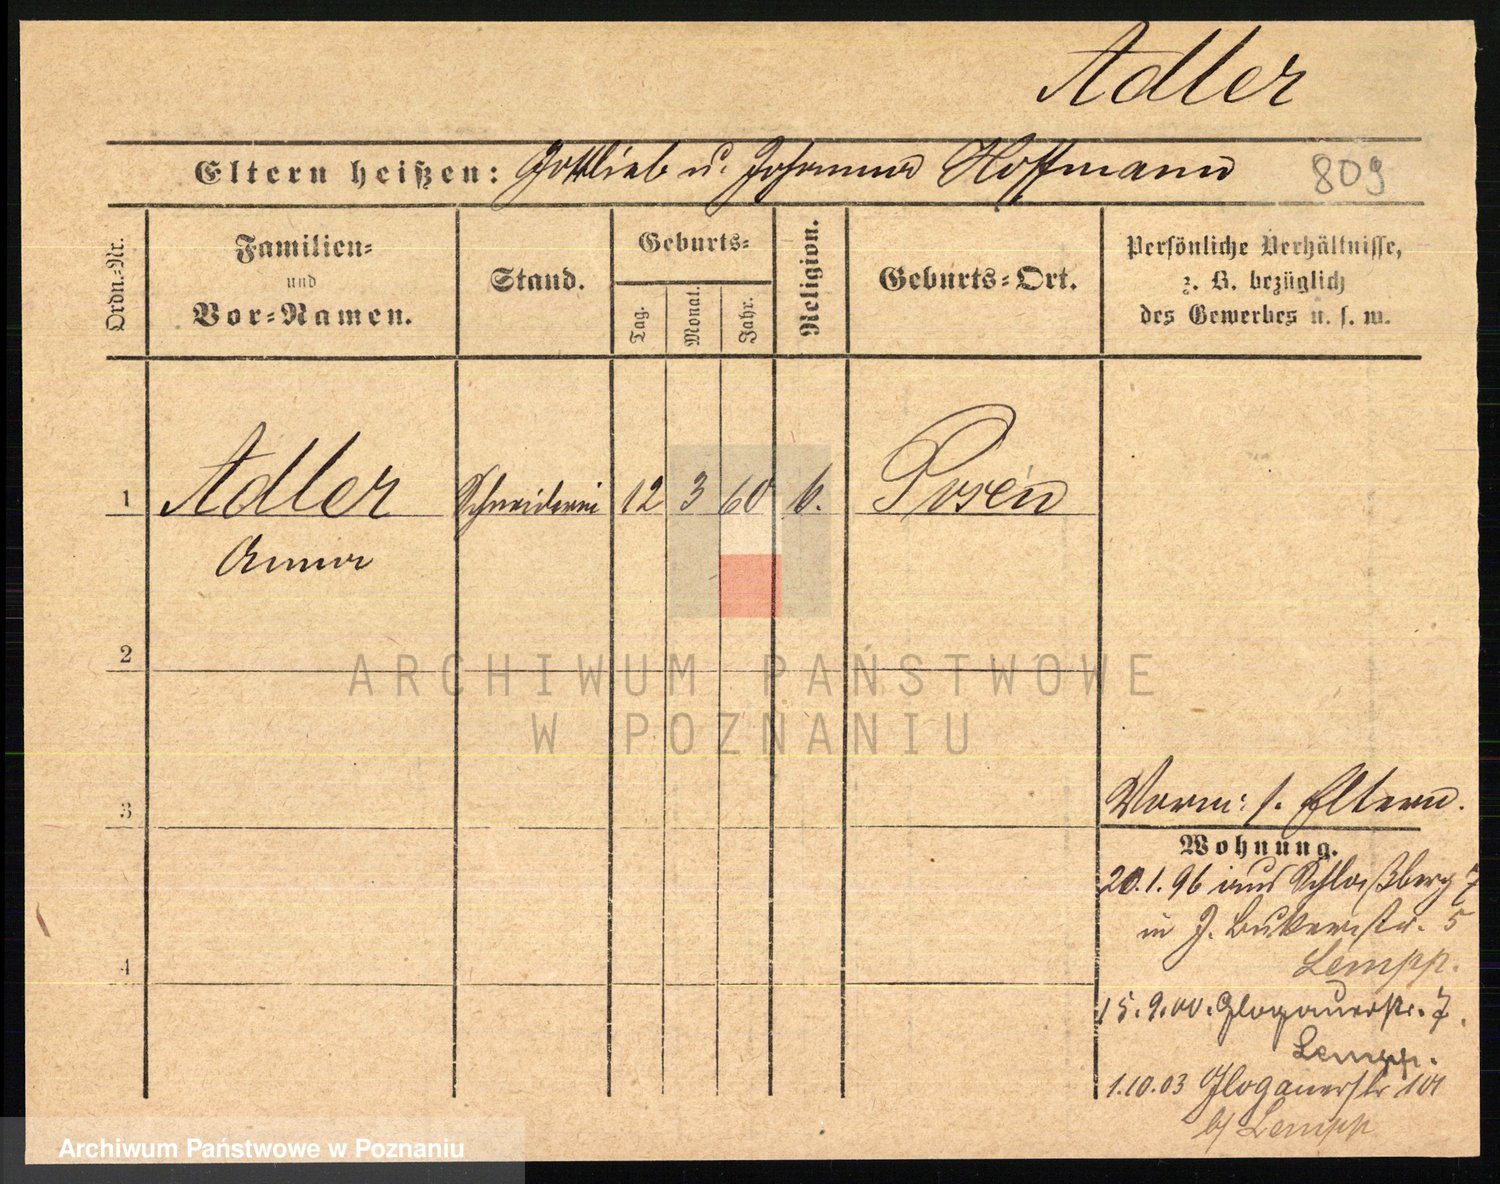 Adler
Eltern heißen: Gottlieb u. Johanna Hoffmann 809
Ordn.=Nr.
Familien=
und
Vor=Namen.
Stand.
Geburts=
Tag.
Monat.
Jahr.
Religion.
Geburts=Ort.
Persönliche Verhältnisse,
z. B. bezüglich
des Gewerbes u. s. w.
1 Adler Schneiderin 12 3 60 k. Posen
Anna
2
ARCHIWUM PAŃSTWOWE
W POZNANIU
3
Vorm: s. Eltern.
Wohnung.
20.1.96 aus Schloßberg 7
in J. Bukerstr. 5
Lempp.
4
15.9.00. Glogauerstr. 7.
Lempp.
1.10.03 Glogauerstr 101
b/ Lempp
Archiwum Państwowe w Poznaniu